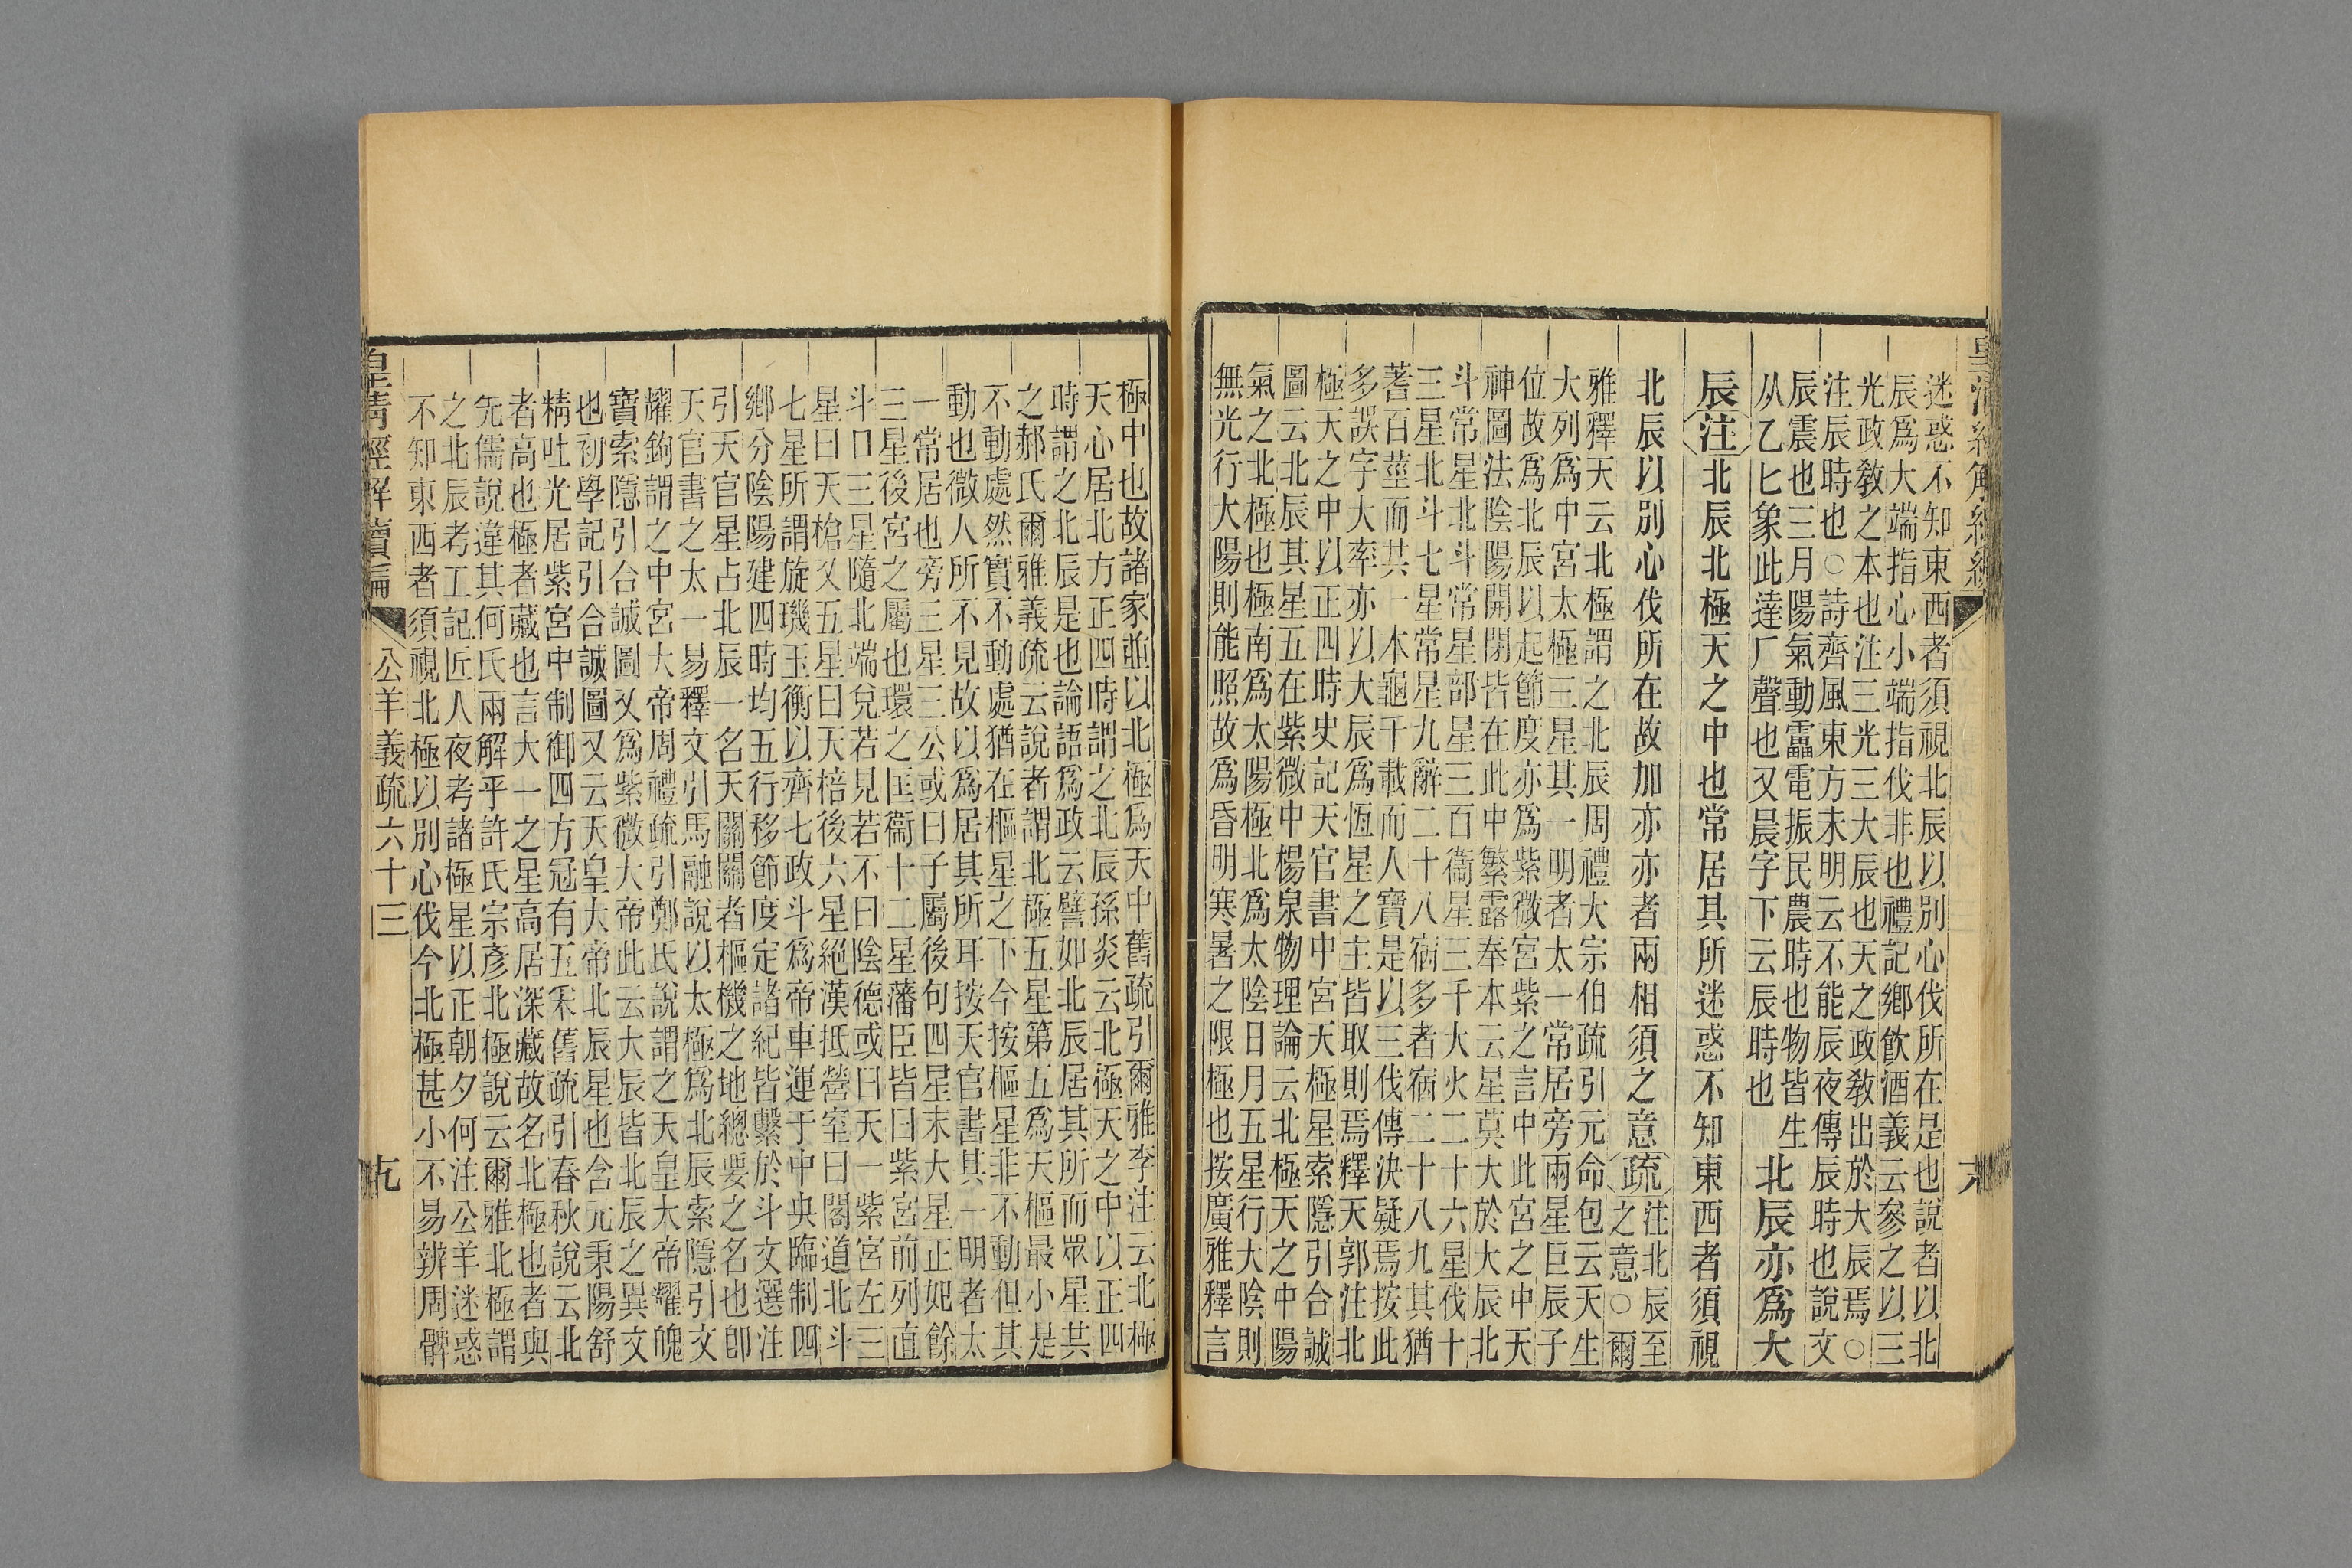 迷惑不知東西者須視北辰以別心伐所在是也說者以北
辰爲大端指心小端指伐非也禮記鄉飲酒義云參之以三
光政教之本也注三光三大辰也天之政教出於大辰焉○
注辰時也○詩齊風東方未明云不能辰夜傳辰時也說文
辰震也三月陽氣動靁電振民農時也物皆生
从乙匕象此達厂聲也又晨字下云辰時也
北辰亦爲大
辰注北辰北極天之中也常居其所迷惑不知東西者須視
北辰以別心伐所在故加亦亦者兩相須之意疏
注北辰至
之意○爾
雅釋天云北極謂之北辰周禮大宗伯疏引元命包云天生
大列爲中宮太極三星其一明者太一常居旁兩星巨辰子
位故爲北辰以起節度亦爲紫微宮紫之言中此宮之中天
神圖法陰陽開閉皆在此中繁露奉本云星莫大於大辰北
斗常星北斗常星部星三百衞星三千大火二十六星伐十
三星北斗七星常星九辭二十八宿多者宿二十八九其猶
蓍百莖而其一本龜千載而人寶是以三伐傳決疑焉按此
多誤字大率亦以大辰爲恆星之主皆取則焉釋天郭注北
極天之中以正四時史記天官書中宮天極星索隱引合誠
圖云北辰其星五在紫微中楊泉物理論云北極天之中陽
氣之北極也極南爲太陽極北爲太陰日月五星行大陰則
無光行大陽則能照故爲昏明寒暑之限極也按廣雅釋言
極中也故諸家並以北極爲天中舊疏引爾雅李注云北極
天心居北方正四時謂之北辰孫炎云北極天之中以正四
時謂之北辰是也論語爲政云譬如北辰居其所而眾星共
之郝氏爾雅義疏云說者謂北極五星第五爲天樞最小是
不動處然實不動處猶在樞星之下今按樞星非不動但其
動也微人所不見故以爲居其所耳按天官書其一明者太
一常居也旁三星三公或曰子屬後句四星末大星正妃餘
三星後宮之屬也環之匡衞十二星藩臣皆曰紫宮前列直
斗口三星隨北端兌若見若不曰陰德或曰天一紫宮左三
星曰天槍又五星曰天棓後六星絕漢抵營室曰閣道北斗
七星所謂旋璣玉衡以齊七政斗爲帝車運于中央臨制四
鄉分陰陽建四時均五行移節度定諸紀皆繫於斗文選注
引天官星占北辰一名天關關者樞機之地總要之名也卽
天官書之太一易釋文引馬融說以太極爲北辰索隱引文
耀鉤謂之中宮大帝周禮疏引鄭氏說謂之天皇大帝耀魄
寶索隱引合誠圖又爲紫微大帝此云大辰皆北辰之異文
也初學記引合誠圖又云天皇大帝北辰星也含元秉陽舒
精吐光居紫宮中制御四方冠有五采舊疏引春秋說云北
者高也極者藏也言大一之星高居深藏故名北極也者與
先儒說違其何氏兩解乎許氏宗彥北極說云爾雅北極謂
之北辰考工記匠人夜考諸極星以正朝夕何注公羊迷惑
不知東西者須視北極以別心伐今北極甚小不易辨周髀
皇清經解續編
公羊義疏六十三